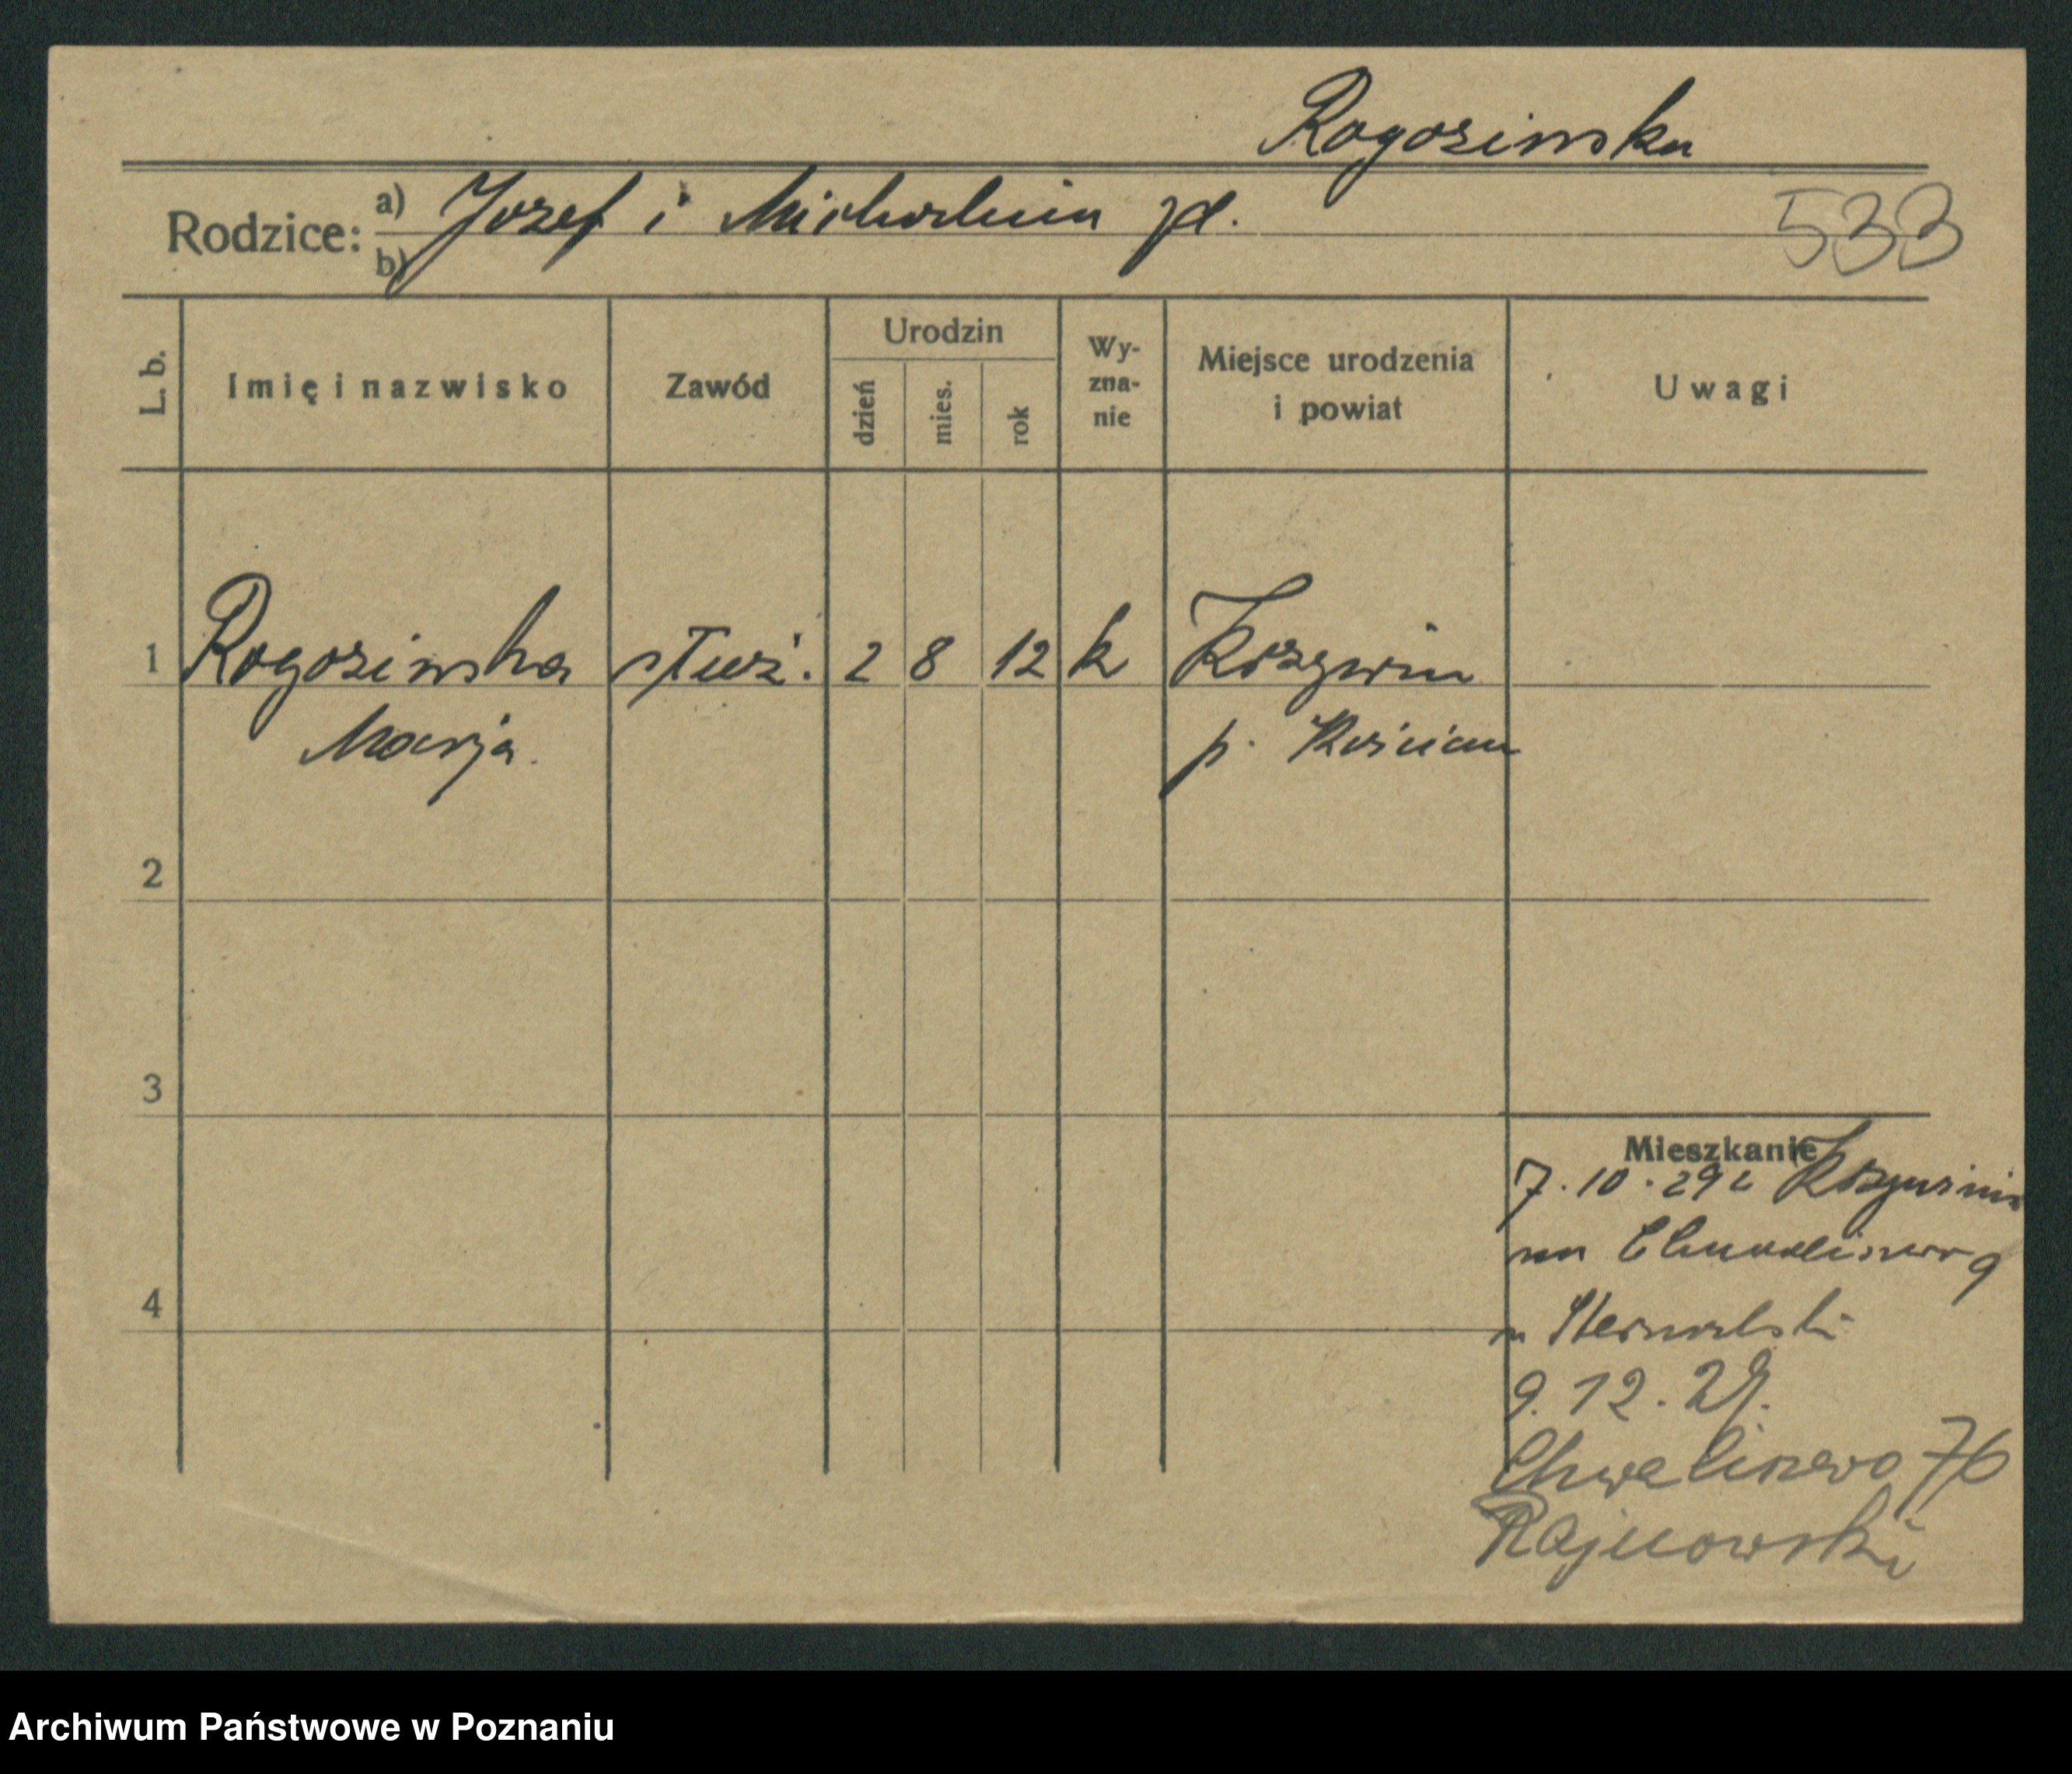 Rogozinska
Rodzice: a) Jozef i Michalina zd.
b)
533
L. b. Imię i nazwisko Zawód Urodzin dzień mies. rok Wyznanie Miejsce urodzenia i powiat Uwagi
1 Rogozinska służ. 2 8 12 k
Marja. p. Kościan
2
3
Mieszkanie
7.10.29 z
na Chwaliszewo 9
4
9.12.29.
Chwaliszewo 76
Rajnowski
Archiwum Państwowe w Poznaniu